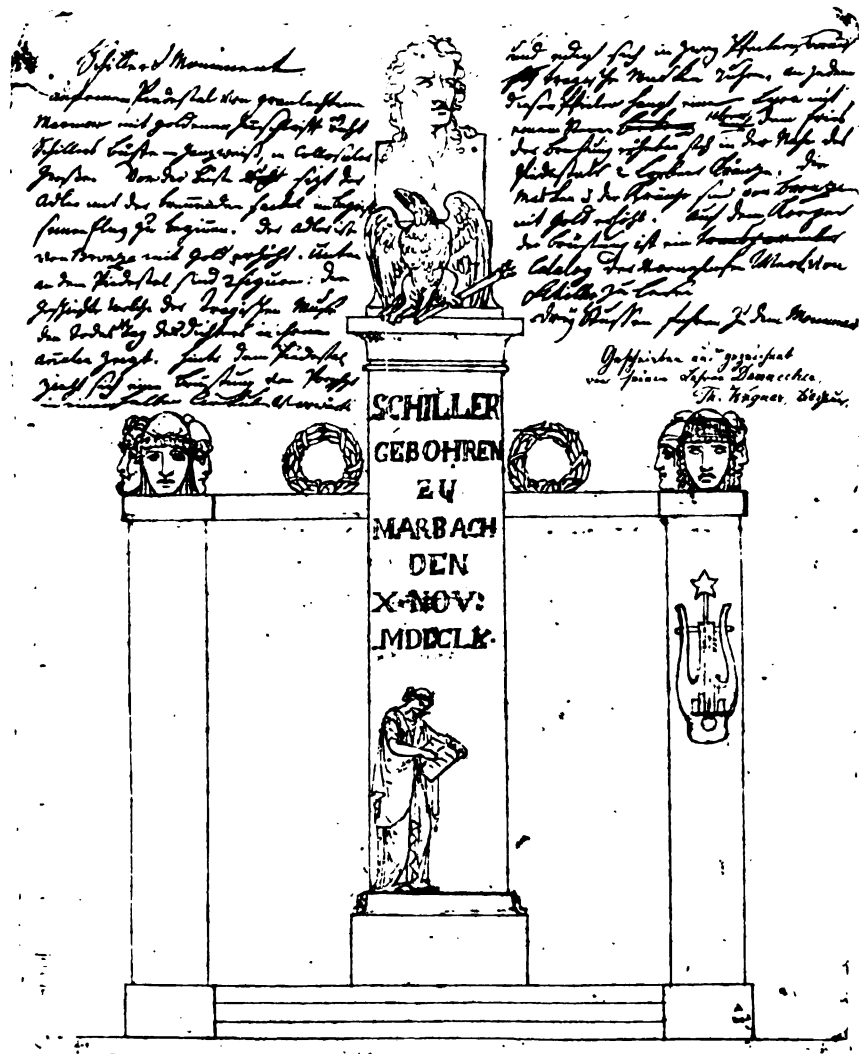 Schillers Monument.
Auf einem Piedestal von
Marmor mit goldener Inschrift steht
Schillers Büste in ganz weiß, in Collosaler
Größe. Vor der Büste sitzt der
Adler mit der brennenden Fackel im Begriff
seinen Flug zu beginnen. Der Adler ist
von Bronze mit Gold erhöht. Unten
an dem Piedestal sind 2 Figuren: die
Geschichte welche der tragischen Muse
den Todes Tag des Dichters in ihren
Annalen zeigt. Hinter dem Piedestal
zieht sich eine Brüstung von Porphyr
in einer halben vorwärts
und endigt sich in zwey Pfeilern, worauf
tragische Masken ruhen. An jedem
dieser Pfeiler hangt eine Lyra mit
einem Stern. dem Fries
der Brüstung erheben sich in der Nähe des
Piedestals 2 Lorbeer Kränze. Die
Masken & der Kränze sind von Bronze
mit Gold erhöht. Auf dem Körper
der Brüstung ist ein transparenter
Catalog der vorzüglichsten Werke von
Schiller zu lesen
Drey Stuffen führen zu dem Monument
Geschrieben und gezeichnet
von seinem Lehrer Dannecker.
Th. Wagner,
SCHILLER
GEBOHREN
ZU
MARBACH
DEN
X. NOV:
MDCCLIX.